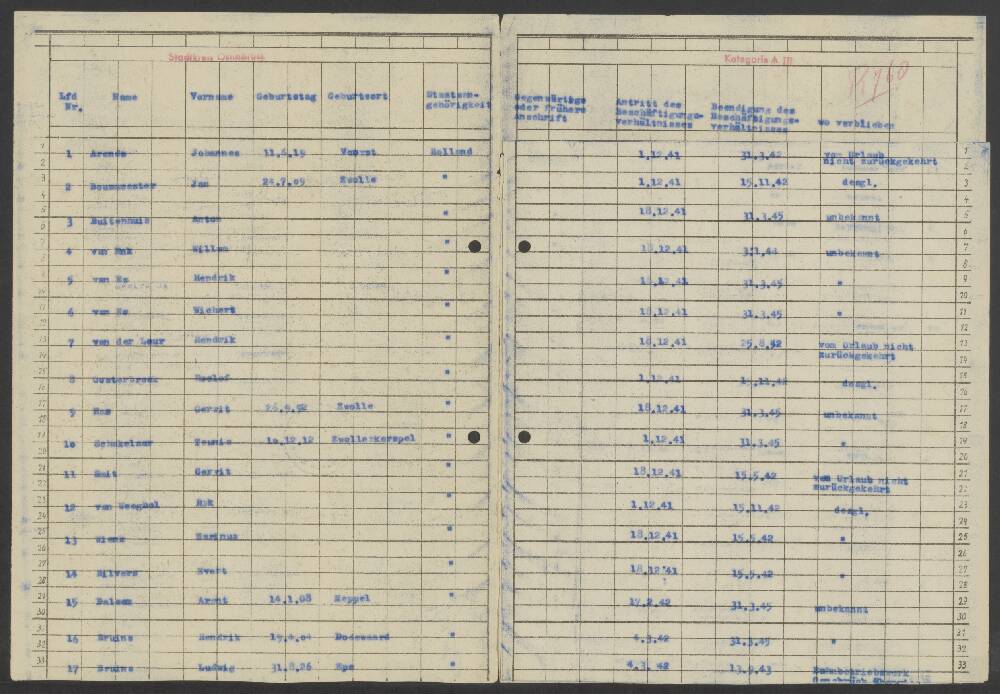 Stadtkreis Osnabrück
Kategorie A III
Lfd Nr. Name Vorname Geburtstag Geburtsort Staatsan- gehörigkeit Gegenwärtige oder frühere Anschrift Antritt des Beschäftigungs- verhältnisses Beendigung des Beschäftigungs- verhältnisses wo verblieben
1 Arends Johannes 11.6.19 Voorst Holland 1.12.41 31.3.42 vom Urlaub nicht zurückgekehrt
2 Bouwmeester Jan 24.7.09 Zwolle " 1.12.41 15.11.42 desgl.
3 Buitenhuis Anton " 18.12.41 31.3.45 unbekannt
4 van Enk Willem " 18.12.41 unbekannt
5 van Es Hendrik " 18.12.41 31.3.45 "
6 van Es Wichert " 18.12.41 31.3.45 "
7 van der Leur Hendrik " 18.12.41 25.8.42 vom Urlaub nicht zurückgekehrt
8 Oosterbroek Roelof " 1.12.41 15.11.42 desgl.
9 Gerrit Zwolle " 18.12.41 31.3.45 unbekannt
10 Schakelaar Teunis 10.12.12 Zwollerkerspel " 1.12.41 31.3.45 "
11 Smit Gerrit " 18.12.41 15.5.42 vom Urlaub nicht zurückgekehrt
12 van Weeghel " 1.12.41 15.11.42 desgl.
13 Marinus " 18.12.41 15.5.42 "
14 Hilvers Evert " 18.12.41 15.5.42 "
15 Arent 14.1.08 Meppel " 17.2.42 31.3.45 unbekannt
16 Bruins Hendrik 19.4.04 Dodewaard " 4.3.42 31.3.45 "
17 Bruins Ludwig 31.8.26 Epe " 4.3.42 13.9.43 Bahnbetriebswerk